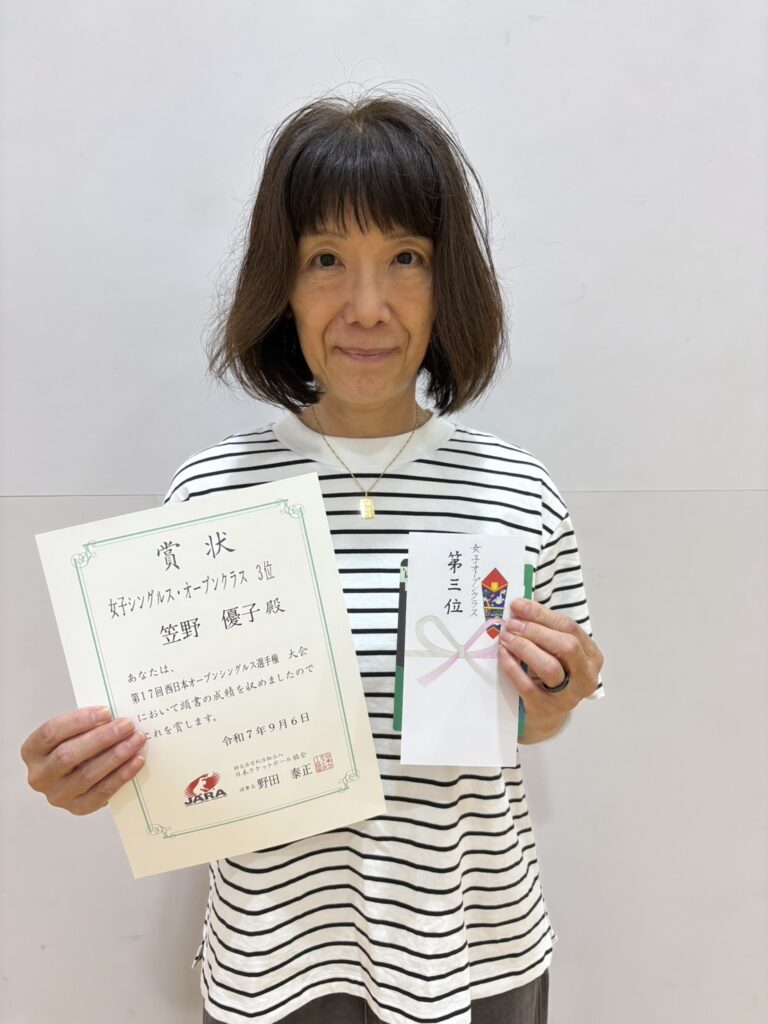 賞状
女子シングルス・オープンクラス 3位
笠野 優子 殿
あなたは、
第17回西日本オープンシングルス選手権 大会
において頭書の成績を収めましたので
これを賞します。
令和7年9月6日
特定非営利活動法人
日本ラケットボール協会
理事長 野田 泰正
JARA
女子オープンクラス
第三位